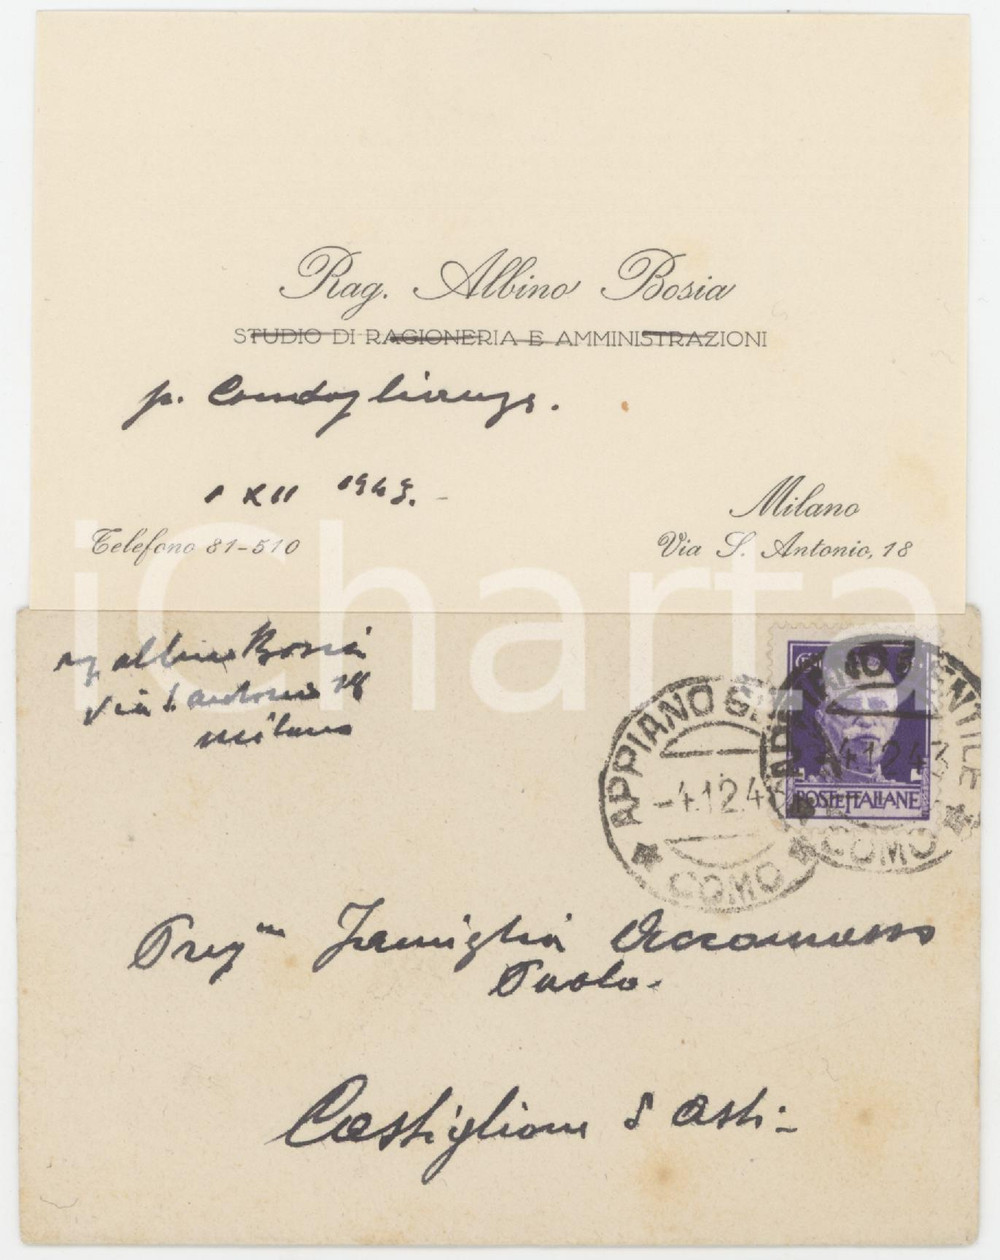 Rag. Albino Bosia
STUDIO DI RAGIONERIA E AMMINISTRAZIONI
p. Condoglianze.
1 XII 1943.-
Milano
Telefono 81-510
Via S. Antonio, 18
iCharta
rag albino Bosia
Via S. Antonio 18
Milano
APPIANO GENTILE
-4.12.43
COMO
APPIANO GENTILE
-4.12.43
COMO
POSTE ITALIANE
Famiglia Accomasso
Paolo.
Castiglione d'Asti